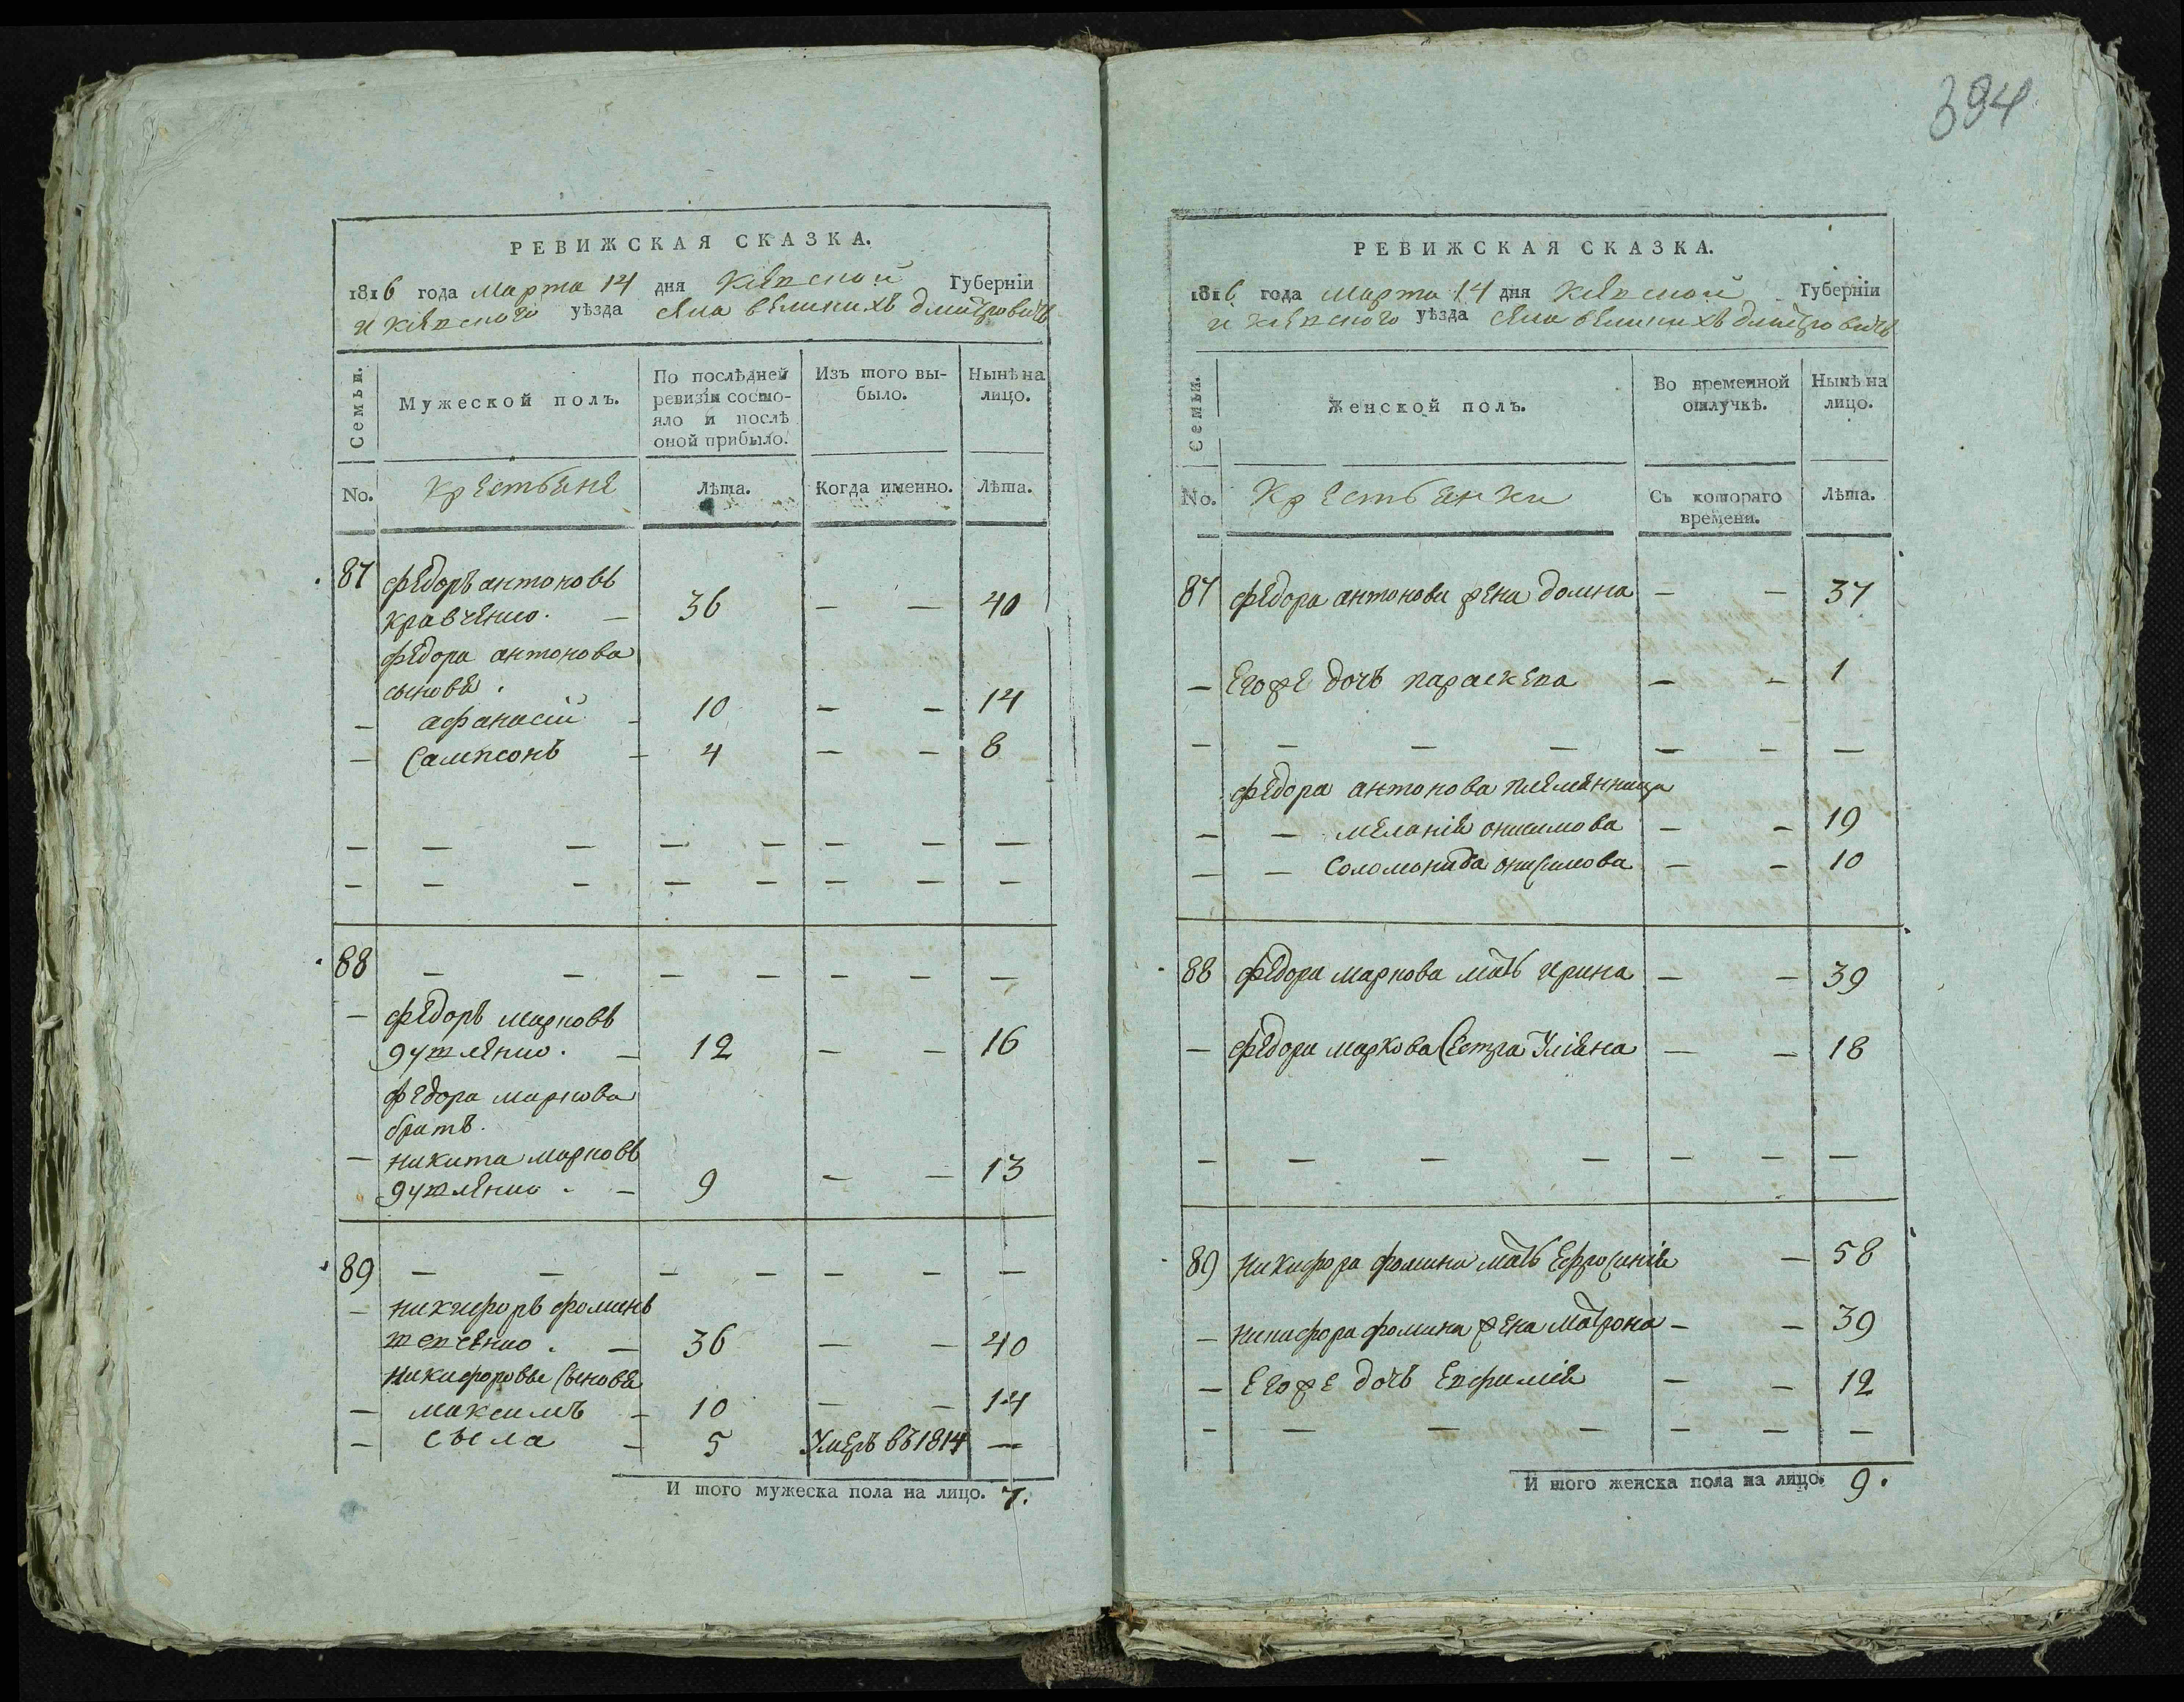 394
РЕВИЖСКАЯ СКАЗКА.
1816 года марта 14 дня Киевской Губерніи
и Киевского уѣзда села великихъ дмитровичъ
Семьи.
Мужеской полъ.
По послѣдней ревизіи состо-
яло и послѣ
оной прибыло.
Изъ того вы-
было.
Нынѣ на
лицо.
No.
Крестьяне
Лѣта.
Когда именно.
Лѣта.
87 федоръ антоновъ
кравченко. — 36 — — 40
федора антонова
сыновя.
— афанасій — 10 — — 14
— Сампсонъ — 4 — — 8
— — — — — — — —
— — — — — — — —
88 — — — — — — —
— федоръ марковъ
— 12 — — 16
федора маркова
братъ.
— никита марковъ
— 9 — — 13
89 — — — — — — —
— никифоръ фоминъ
— 36 — — 40
никифоровы сыновя
— максимъ — 10 — — 14
— сыла — 5 Умеръ въ 1814 —
И того мужеска пола на лицо. 7.
РЕВИЖСКАЯ СКАЗКА.
1816 года марта 14 дня Киевской Губерніи
и Киевского уѣзда села великихъ дмитровичъ
Семьи.
Женской полъ.
Во временной
отлучкѣ.
Нынѣ на
лицо.
No.
Крестьянки
Съ котораго
времени.
Лѣта.
87 федора антонова жена домна — — 37
— Егоже дочъ параскева — — 1
— — — — — — —
федора антонова племянница
— — меланія онисимова — — 19
— — Соломонида онисимова — — 10
88 федора маркова мать ирина — — 39
— федора маркова Сестра Уліяна — — 18
— — — — — — —
89 никифора фомина мать Ефросинія — 58
— никифора фомина жена матрона — — 39
— Егоже дочъ Евфимія — — 12
— — — — — — —
И того женска пола на лицо. 9.